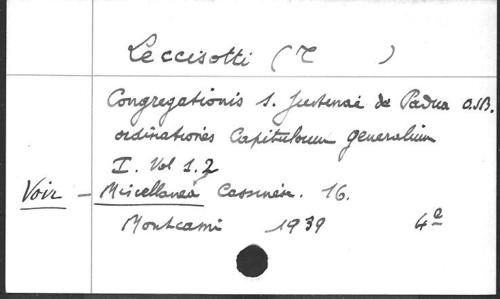 Leccisotti (T )
Congregationis S. Justinae de Padua O.S.B.
ordinationes Capitulorum generalium
I. Vol 1.2
Voir - Miscellanea Cassinese. 16.
Montcassin 1939 4º